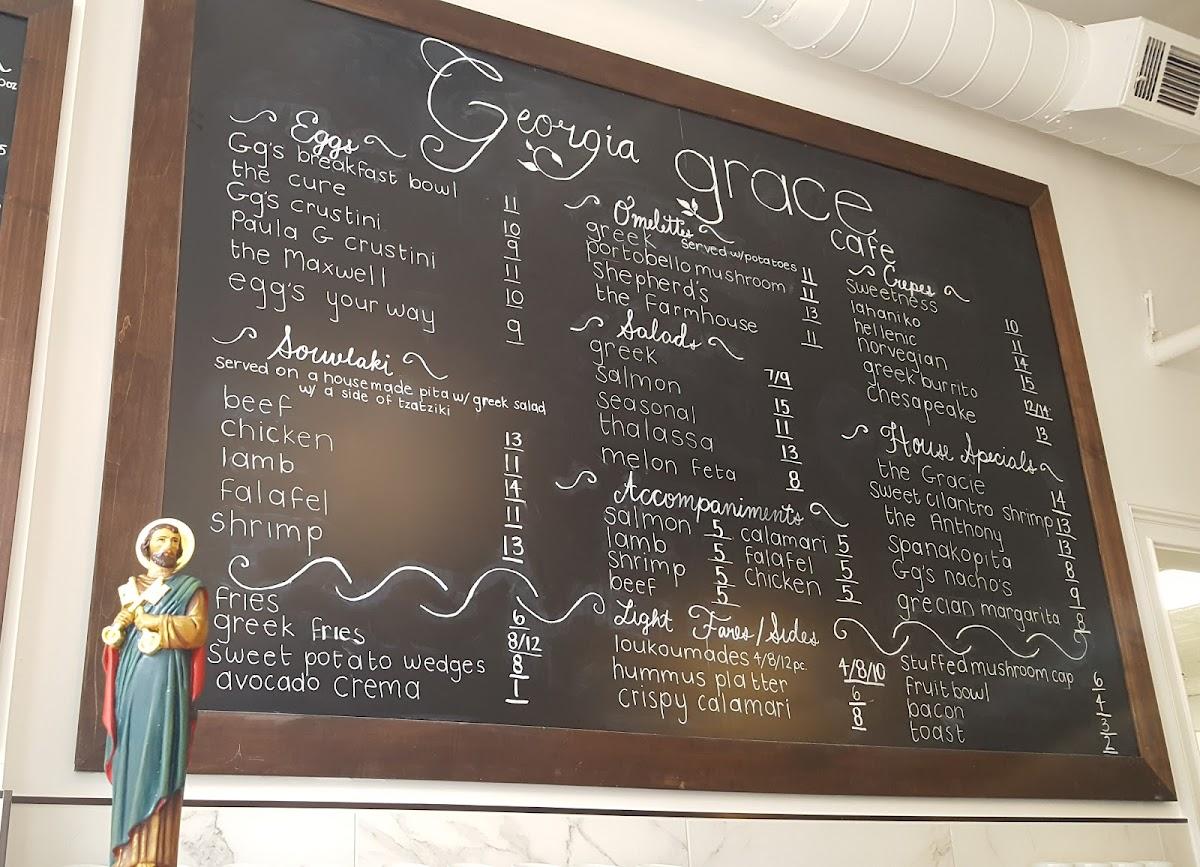 Georgia grace
cafe
Eggs
Gg's breakfast bowl 11
the cure 10
Gg's crustini 9
Paula G crustini 11
the Maxwell 10
egg's your way 9
Souvlaki
Served on a housemade pita w/ greek salad
w/ a side of tzatziki
beef 13
chicken 11
lamb 14
falafel 11
shrimp 13
fries 6
greek fries 8/12
Sweet potato wedges 8
avocado crema 1
O'melettes
Served w/potatoes
greek 11
portobello mushroom 11
Shepherd's 13
the Farmhouse 11
Salads
greek 7/9
Salmon 15
Seasonal 11
thalassa 13
melon feta 8
Accompaniments
Salmon 5 calamari 5
lamb 5 falafel 5
Shrimp 5 chicken 5
beef 5
Light Fares/Sides
loukoumades 4/8/12pc. 4/8/10
hummus platter 6
crispy calamari 8
Crepes
Sweetness 10
lahaniko 11
hellenic 14
norvegian 15
greek burrito 12/14
chesapeake 13
House Specials
the Gracie 14
Sweet cilantro shrimp 13
the Anthony 13
Spanakopita 8
Gg's nacho's 9
grecian margarita 8
Stuffed mushroom cap 6
Fruit bowl 4
bacon 3
toast 2